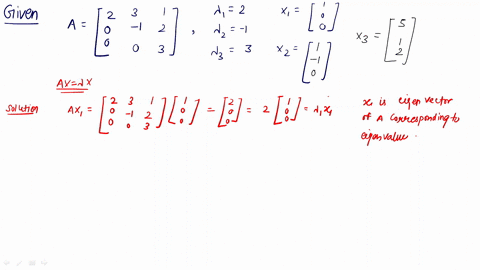 Given
A = [2 3 1; 0 -1 2; 0 0 3] , λ₁ = 2 λ₂ = -1 λ₃ = 3 x₁ = [1; 0; 0] x₂ = [1; -1; 0] x₃ = [5; 1; 2]
AX = λX
Solution AX₁ = [2 3 1; 0 -1 2; 0 0 3] [1; 0; 0] = [2; 0; 0] = 2 [1; 0; 0] = λ₁x₁
x₁ is eigen vector
of A corresponding to
eigen value